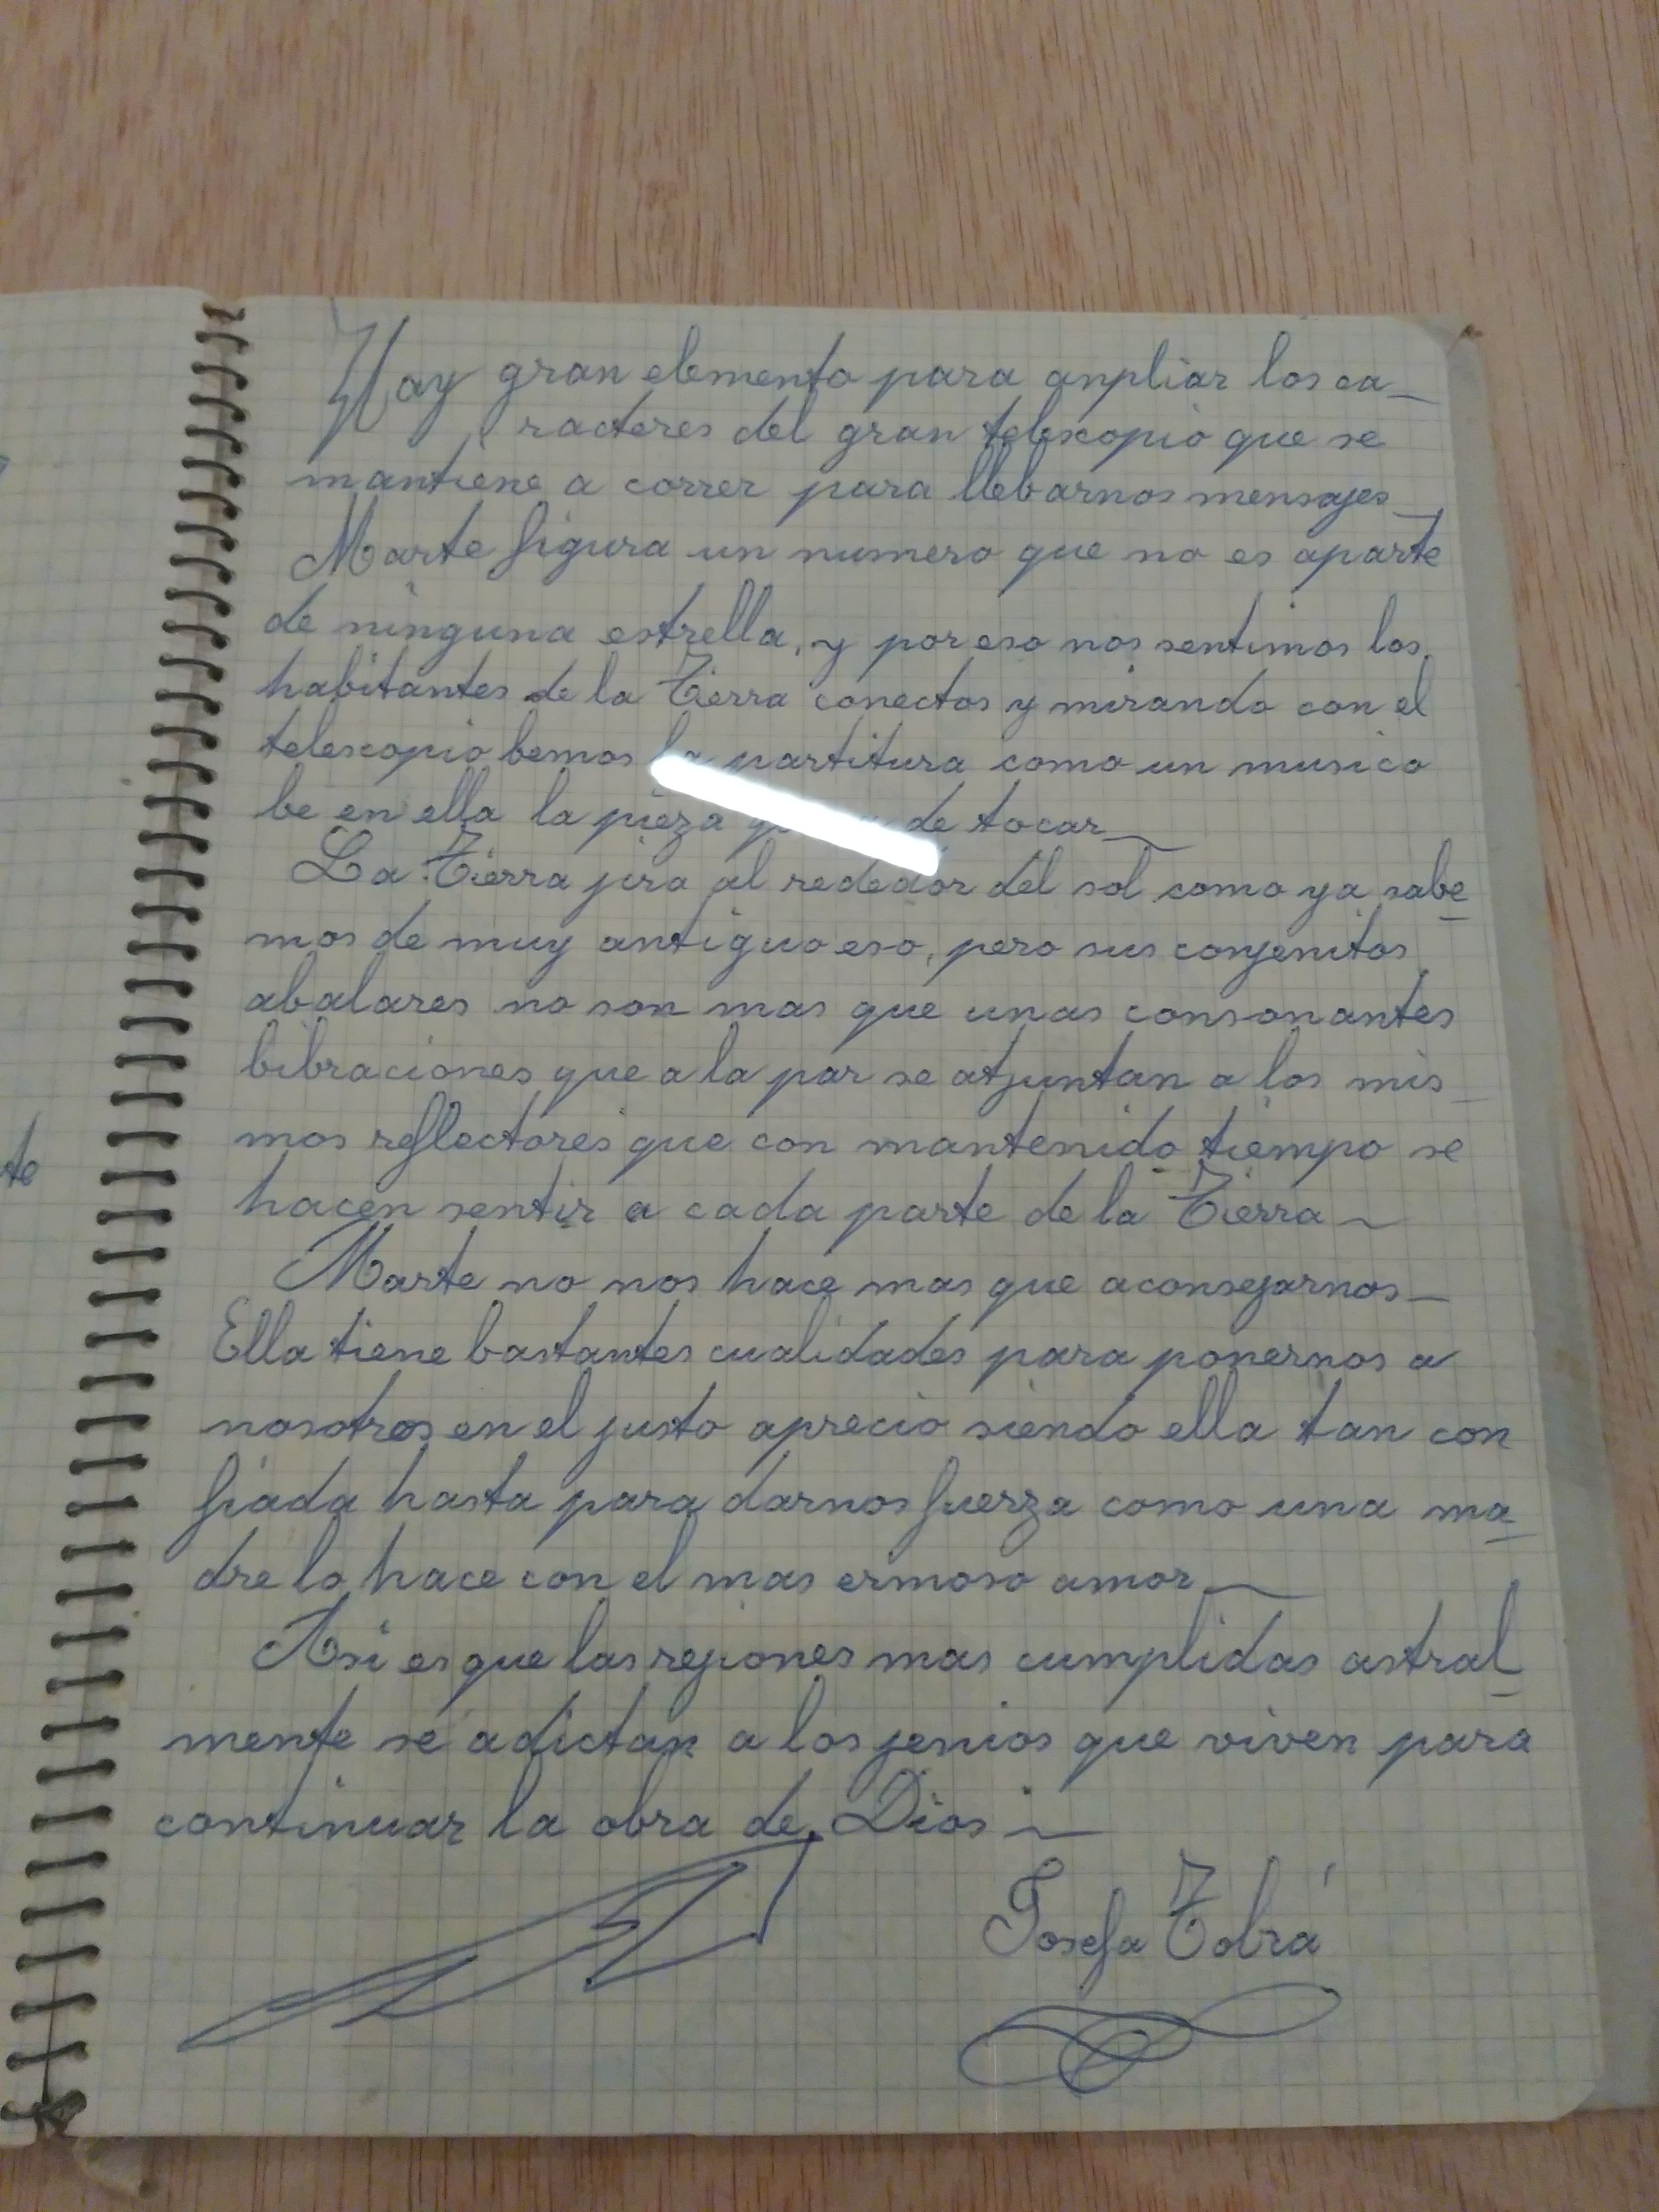 Hay gran elemento para anpliar los ca_
racteres del gran telescopio que se
mantiene a correr para llebarnos mensajes_
Marte figura un numero que no es aparte
de ninguna estrella, y por eso nos sentimos los
habitantes de la Tierra conectos y mirando con el
telescopio bemos la partitura como un musico
be en ella la pieza de tocar_
La Tierra jira al rededor del sol como ya sabe_
mos de muy antiguo eso, pero sus conjenitos
abalares no son mas que unas consonantes
bibraciones que a la par se atjuntan a los mis_
mos reflectores que con mantenido tiempo se
hacen sentir a cada parte de la Tierra_
Marte no nos hace mas que aconsejarnos_
Ella tiene bastantes cualidades para ponernos a
nosotros en el justo aprecio siendo ella tan con
fiada hasta para darnos fuerza como una ma_
dre lo hace con el mas ermoso amor_
Asi es que las rejiones mas cumplidas astral_
mente se adictan a los jenios que viven para
continuar la obra de Dios_
Josefa Tolrá
te